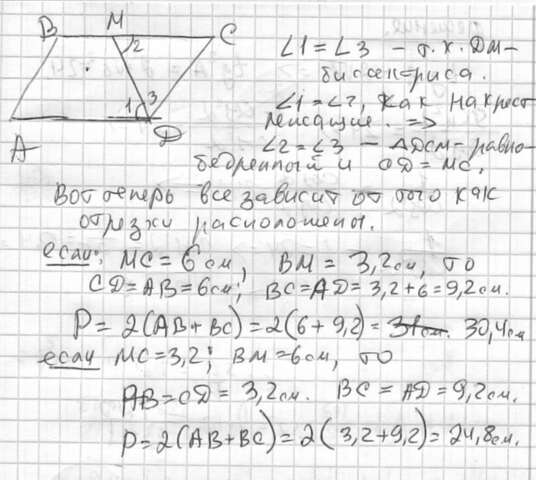 B M C
2
1 3
A D
∠1 = ∠3 – т.к. DM –
биссектриса.
∠1 = ∠2, как накрест
лежащие. =>
∠2 = ∠3 – ΔDCM – равно-
бедренный и CD = MC,
Вот теперь все зависит от того как
отрезки расположены.
если: MC = 6 см, BM = 3,2 см, то
CD = AB = 6 см; BC = AD = 3,2 + 6 = 9,2 см.
P = 2(AB + BC) = 2(6 + 9,2) = 30,4 см
если MC = 3,2; BM = 6 см, то
AB = CD = 3,2 см. BC = AD = 9,2 см.
P = 2(AB + BC) = 2(3,2 + 9,2) = 24,8 см.